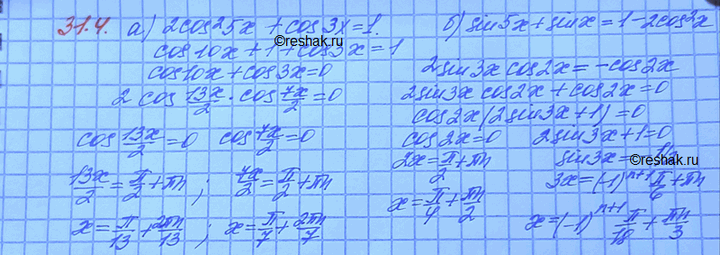 31.4. а) 2cos²5x + cos3x = 1.
cos10x + 1 + cos3x = 1
cos10x + cos3x = 0
2 cos 13x/2 · cos 7x/2 = 0
cos 13x/2 = 0 cos 7x/2 = 0
13x/2 = π/2 + πn ; 7x/2 = π/2 + πn
x = π/13 + 2πn/13 ; x = π/7 + 2πn/7
©reshak.ru
б) sin5x + sinx = 1 - 2cos²x
2sin3x cos2x = -cos2x
2sin3x cos2x + cos2x = 0
cos2x(2sin3x + 1) = 0
cos2x = 0 2sin3x + 1 = 0
2x = π/2 + πn sin3x = -
x = π/4 + πn/2 3x = (-1)ⁿ⁺¹ π/6 + πn
x = (-1)ⁿ⁺¹ π/18 + πn/3
©reshak.ru